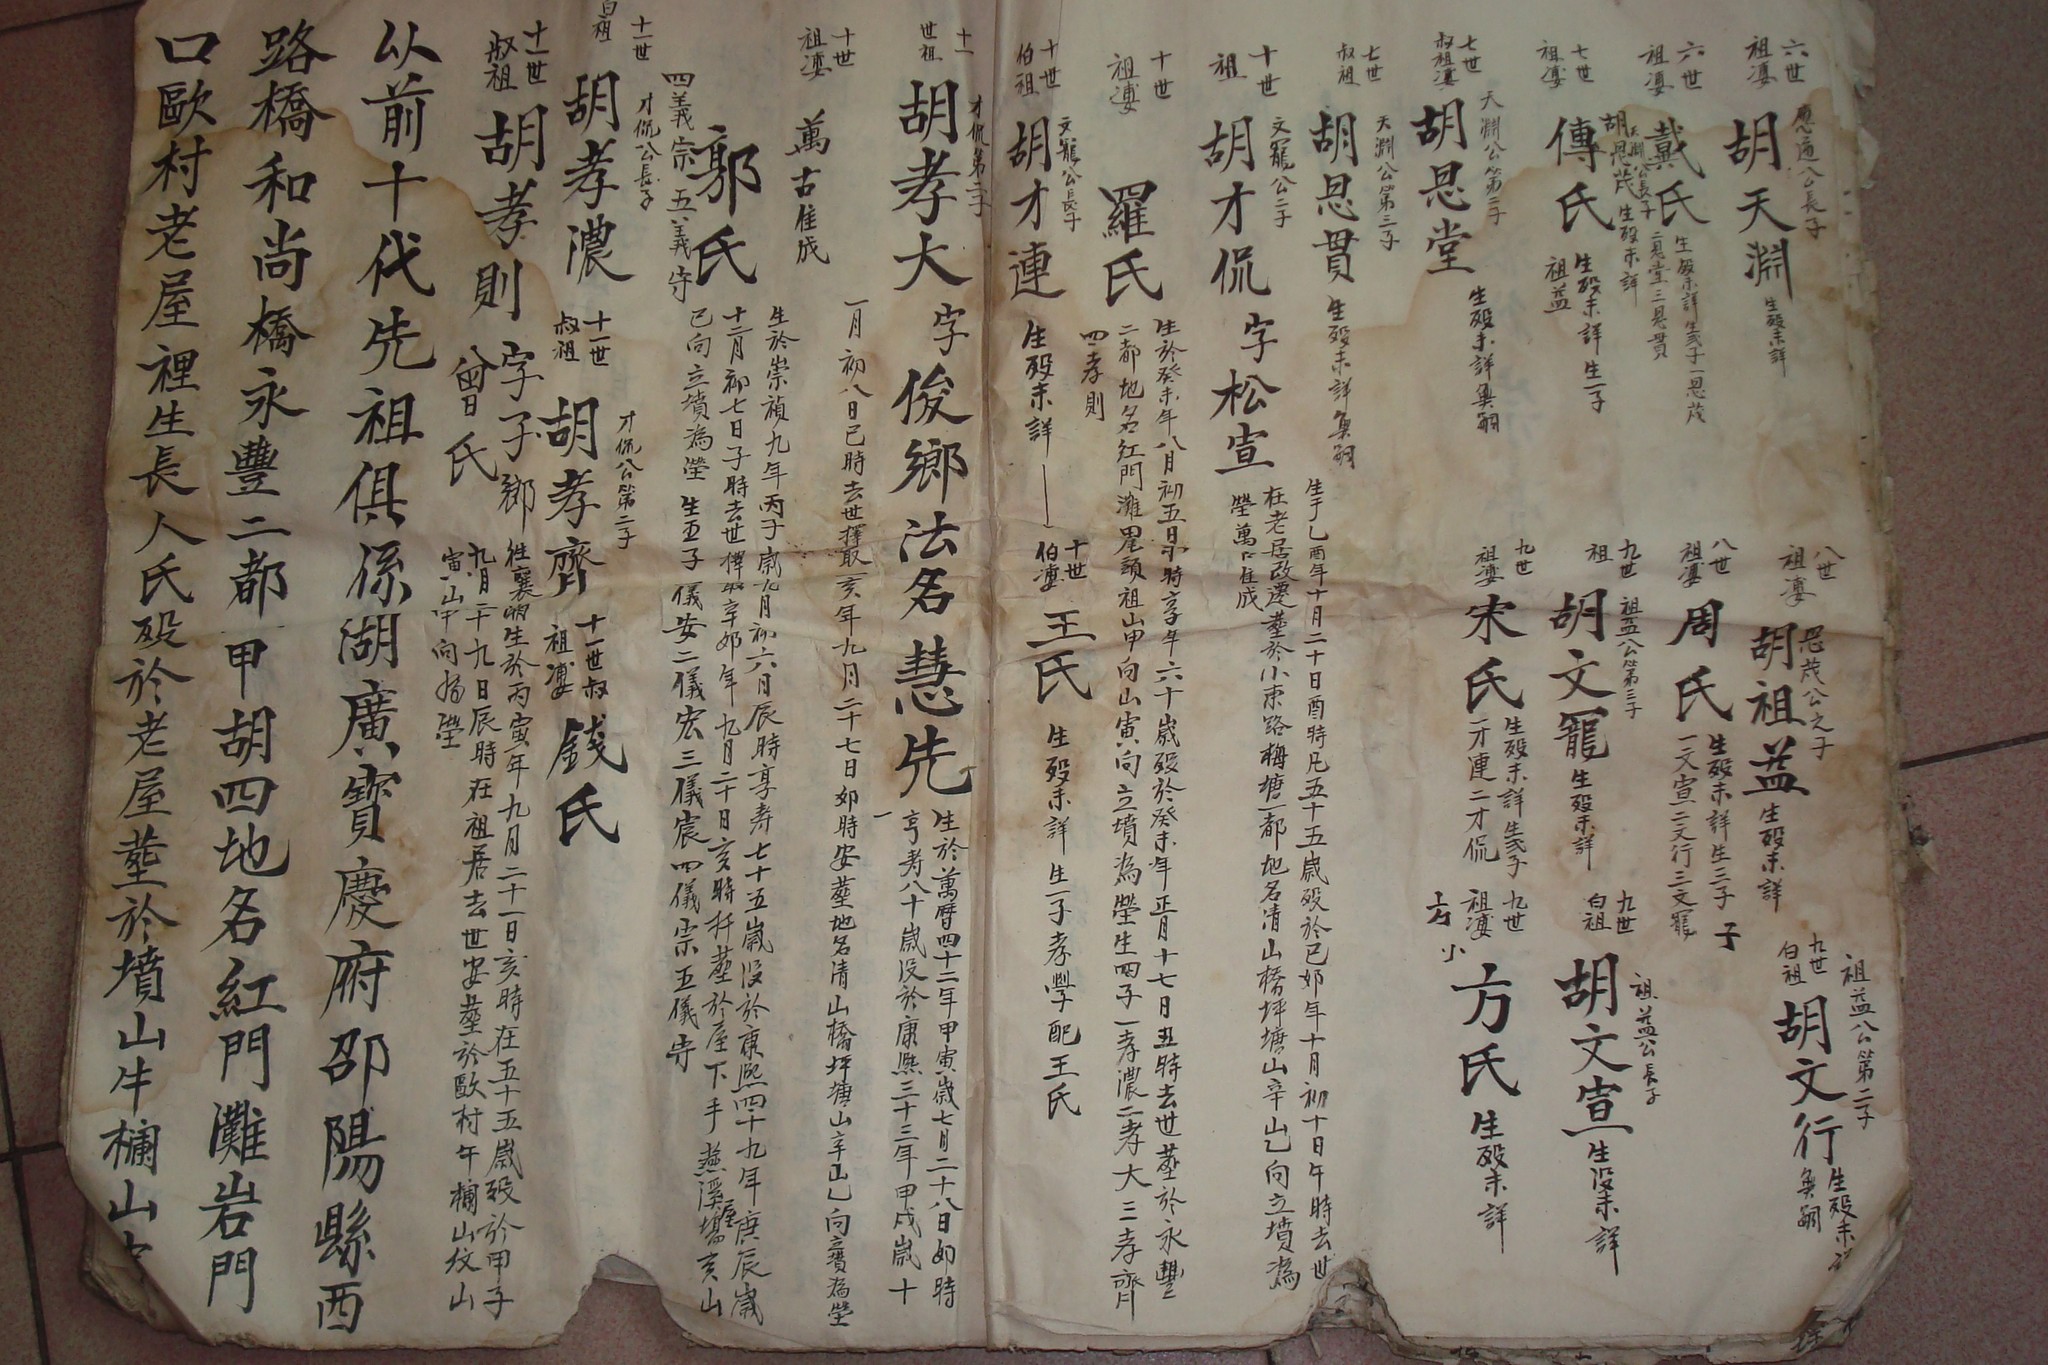 六世
祖
應通公長子
胡天淵
生殁未詳
六世
祖婆
戴氏
生殁未詳生弍子一思茂
二思堂三思貫
七世
祖婆
天淵公長子
胡思茂
生殁未詳
傳氏
生殁未詳生一子
祖益
七世
叔祖
天淵公第二子
胡思堂
生殁未詳無嗣
七世
叔祖
天淵公第三子
胡思貫
生殁未詳無嗣
八世
祖
思茂公之子
胡祖益
生殁未詳
八世
祖婆
周氏
生殁未詳生三子
一文宣二文行三文寵
九世
伯祖
祖益公第二子
胡文行
生殁未詳
無嗣
九世
祖
祖益公第三子
胡文寵
生殁未詳
九世
伯祖
祖益公長子
胡文宣
生没未詳
九世
祖婆
宋氏
生殁未詳生弍子
一才連二才侃
九世
祖婆
方氏
生殁未詳
十世
祖
文寵公二子
胡才侃
字松宣
生于乙酉年十月二十日酉時凡五十五歲殁於已卯年十月初十日午時去世
在老居改遷塟於小東路梅塘一都地名清山橋坪塘山辛山乙向立墳為
塋萬古佳成
十世
祖婆
羅氏
生於癸未年八月初五日 時享年六十歲殁於癸未年正月十七月丑時去世塟於永豐
二都地名紅門灘晃頭祖山甲向山寅向立墳為塋生四子一孝濃二孝大三孝齊
四孝則
十世
伯祖
文寵公長子
胡才連
生殁未詳
十世
伯婆
王氏
生殁未詳生一子孝學配王氏
十一
世祖
才侃第二子
胡孝大
字俊鄉法名慧先
生於萬曆四十二年甲寅歲七月二十八日卯時
亨寿八十歲没於康熙三十三年甲戍歲十
一月初八日已時去世擇取亥年九月二十七日卯時安塟地名清山橋坪塘山辛山乙向立墳為塋
十世
祖婆
萬古佳成
郭氏
生於崇禎九年丙子歲九月初六月辰時享寿七十五歲没於康熙四十九年庚辰歲
十二月初七日子時去世擇取辛卯年九月二十日亥時扦塟於屋下手燕溪塘屋亥山
已向立墳為塋 生五子一儀安二儀宏三儀宸四儀宗五儀守
四義宗五義守
十一世
伯祖
才侃公長子
胡孝濃
十一世
叔祖
才侃公第二子
胡孝齊
十一世叔
祖婆
錢氏
十一世
叔祖
胡孝則
字子鄉
徃襄 生於丙寅年九月二十一日亥時在五十五歲殁於甲子
九月二十九日辰時在祖居去世安塟於歐村午欄山坟山
寅山 向為塋
曾氏
以前十代先祖俱係湖廣寶慶府邵陽縣西
路橋和尚橋永豐二都甲胡四地名紅門灘岩門
口歐村老屋裡生長人氏殁於老屋塟於墳山牛欄山